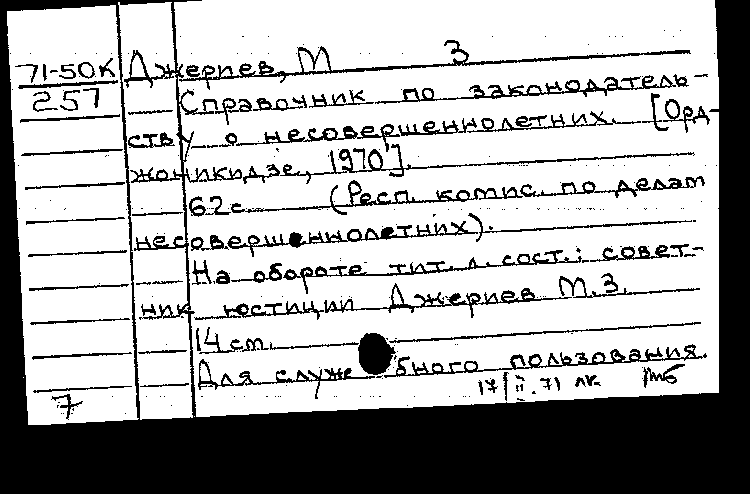 71-50К Джериев, М З
257 Справочник по законодатель-
ству о несовершеннолетних. [Орд-
жоникидзе, 1970].
62с. (Респ. комис. по делам
несовершеннолетних).
На обороте тит. л. сост.: совет-
ник юстиции Джериев М.З.
14 см.
Для служебного пользования.
17/II.71 лк
7